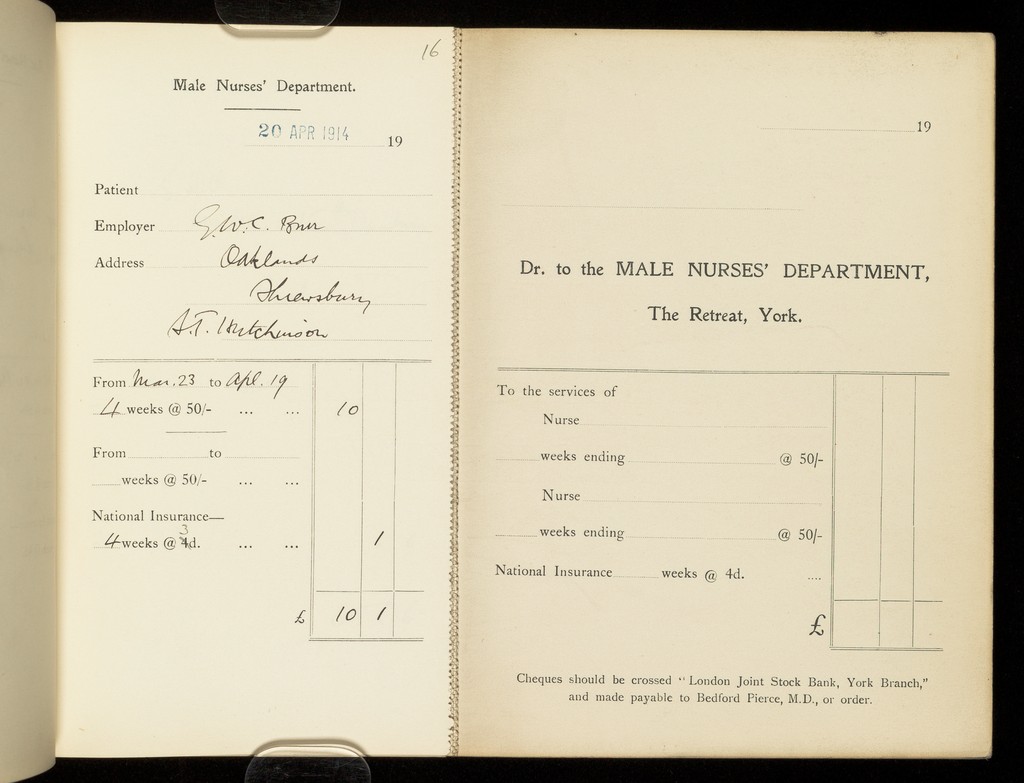 16
Male Nurses' Department.
20 APR 1914 19
Patient
Employer G.W.C.
Address Oaklands
Shrewsbury
S.T. Hutchinson
From Mar. 23 to Apl. 19
4 weeks @ 50/- ... ... 10
From to
weeks @ 50/- ... ...
National Insurance—
3
4 weeks @ 4d. ... ... 1
£ 10 1
19
Dr. to the MALE NURSES' DEPARTMENT,
The Retreat, York.
To the services of
Nurse
weeks ending @ 50/-
Nurse
weeks ending @ 50/-
National Insurance weeks @ 4d. ....
£
Cheques should be crossed "London Joint Stock Bank, York Branch,"
and made payable to Bedford Pierce, M.D., or order.